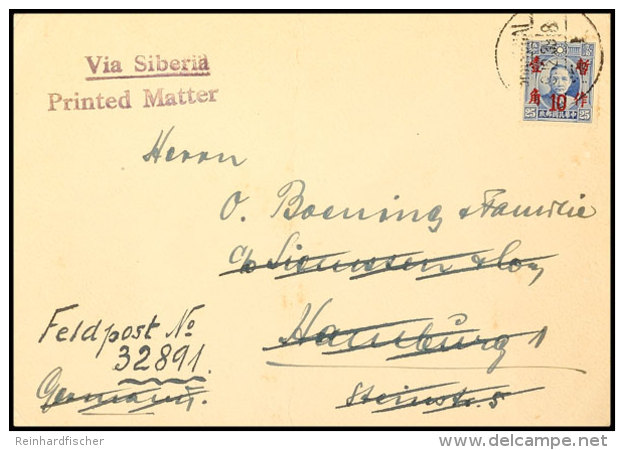 Via Siberia
Printed Matter
壹 暫
角 10 作
25 25
Herrn
O. Boening & Familie
c/o Siemssen & Co,
Hamburg 1
Steinstr. 5
Feldpost No
32891.
Germany.
Reinhardfischer
delcampe.net